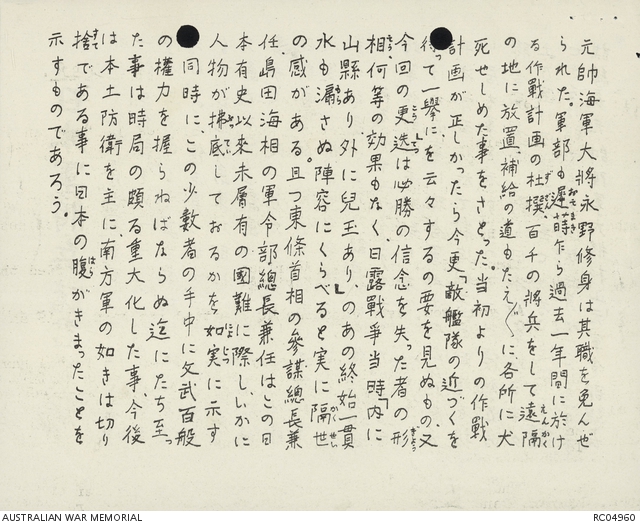 元帥海軍大將永野修身は其職を免んぜ
られた。軍部も遅時乍ら過去一年間に於け
る作戰計画の杜撰、百千の將兵をして遠隔
の地に放置、補給の道もたえ〲に、各所に犬
死せしめた事をさとった。当初よりの作戰
計画が正しかったら今更「敵艦隊の近づくを
待って一擧に」を云々するの要を見ぬもの、又
今回の更迭は必勝の信念を失った者の形
相、何等の効果もなく、日露戰爭当時「内に
山縣あり、外に兒玉あり」のあの終始一貫
水も漏さぬ陣容にくらべると実に隔世
の感がある。且つ東條首相の參謀總長兼
任、島田海相の軍令部總長兼任はこの日
本有史以來未層有の國難に際し、いかに
人物が拂底しておるかを如実に示す
同時に、この少數者の手中に文武百般
の權力を握らねばならぬ迄にたち至っ
た事は時局の頗る重大化した事、今後
は本土防衛を主に、南方軍の如きは切り
捨てである事に日本の腹がきまったことを
示すものであろう。
AUSTRALIAN WAR MEMORIAL
RC04960